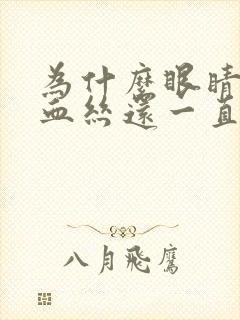 為什麼眼睛
血絲還一直
八月飛鷹